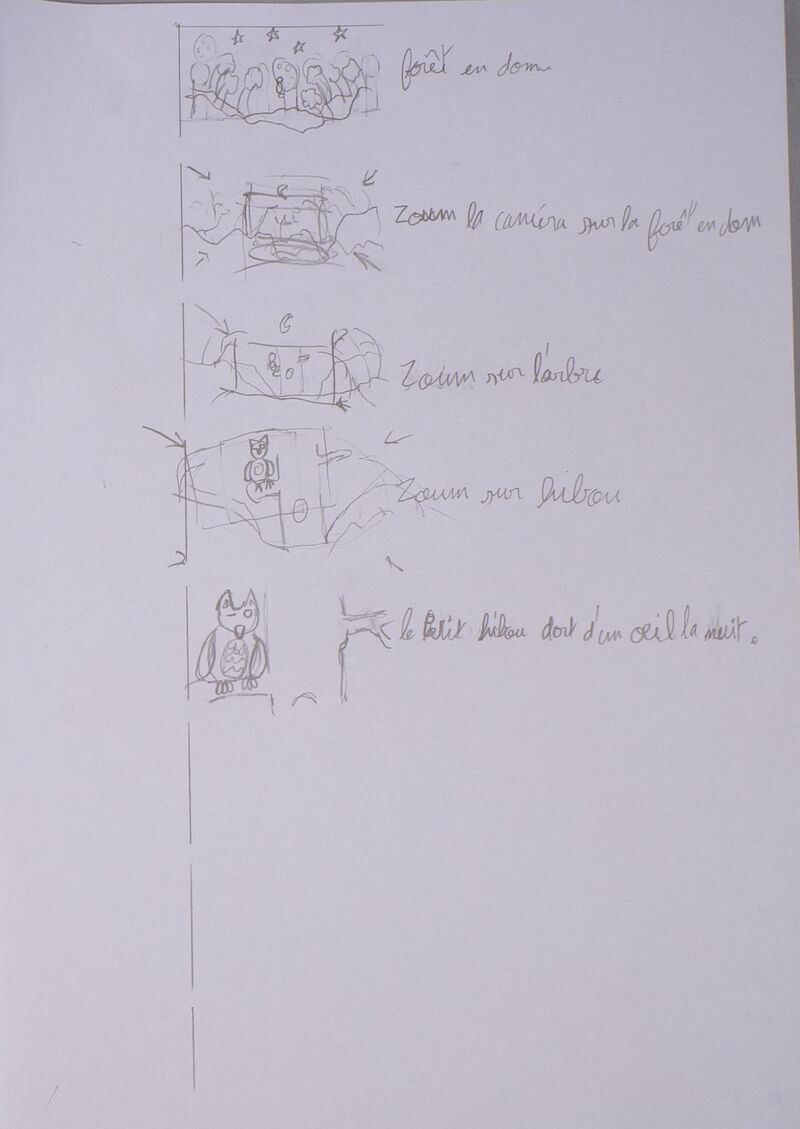 forêt en dom
Zoum la caméra sur la forêt en dom
Zoum sur l'arbre
Zoum sur hibou
le Petit hibou dort d'un œil la nuit.